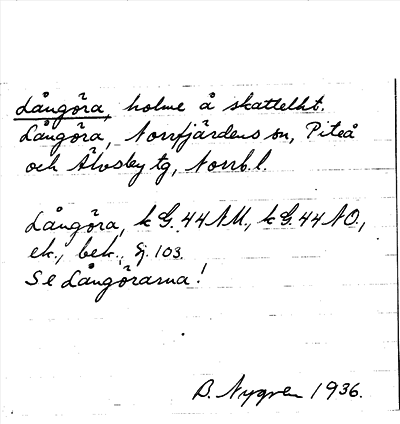 Långöra, holme å skattelht.
Långöra, Norrfjärdens sn, Piteå
och Älvsby tg, Norrb. l.
Långöra, k G. 44 NU., k G. 44 NO.,
ek., bek., Gj. 103.
Se Långörarna!
B. Nygren 1936.